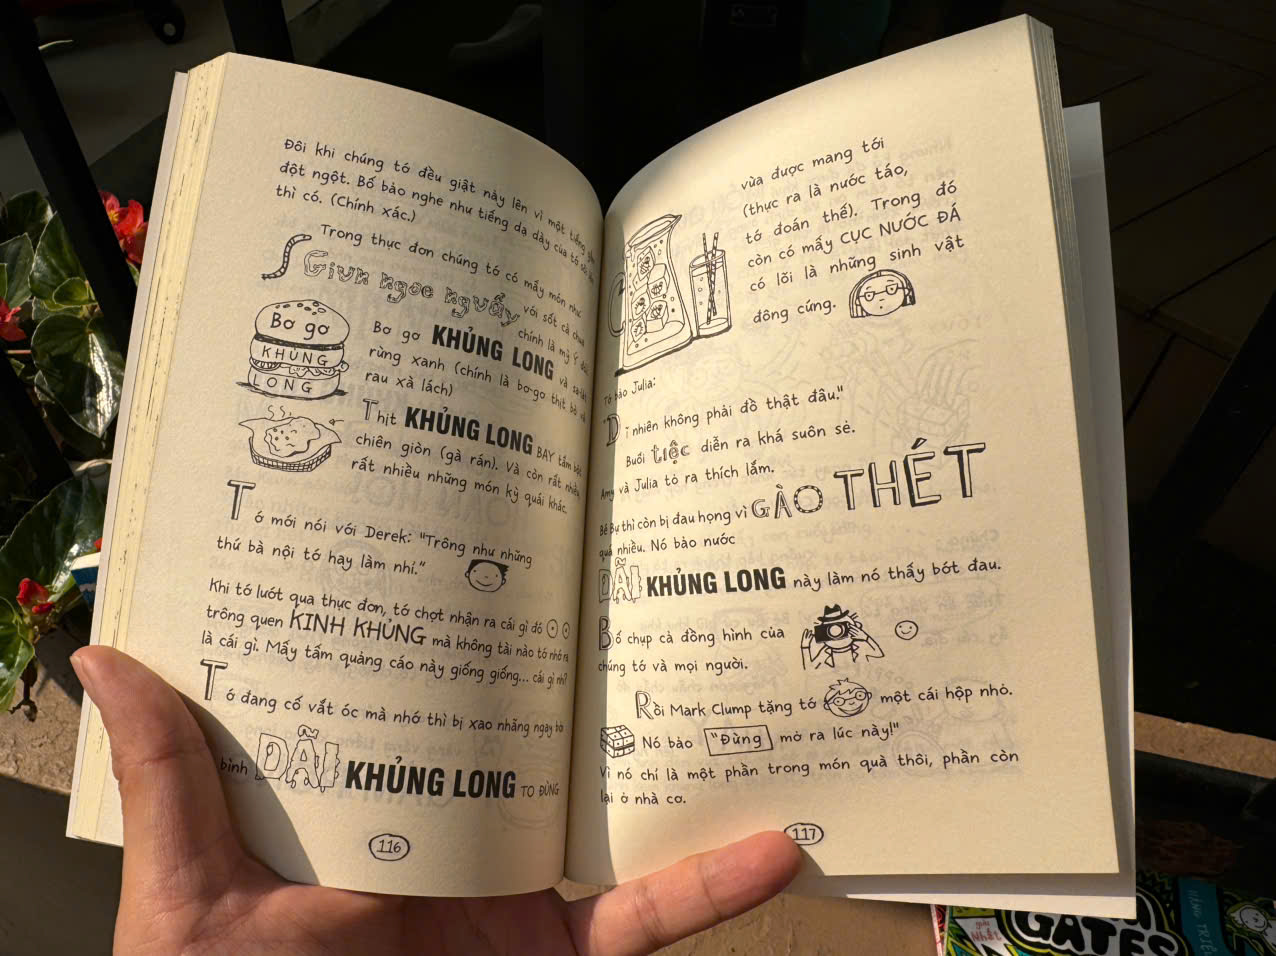 Đôi khi chúng tớ đều giật nảy lên vì một tiếng gầm
đột ngột. Bố bảo nghe như tiếng dạ dày của tớ sôi
thì có. (Chính xác.)
Trong thực đơn chúng tớ có mấy món như
Giun ngoe nguẩy với sốt cà chua
chính là mỳ Ý
Bơ gơ KHỦNG LONG và sa-lát
rừng xanh (chính là bơ-gơ thịt bò và
rau xà lách)
Bơ gơ
KHỦNG
LONG
Thịt KHỦNG LONG BAY tẩm bột
chiên giòn (gà rán). Và còn rất nhiều
rất nhiều những món kỳ quái khác.
Tớ mới nói với Derek: "Trông như những
thứ bà nội tớ hay làm nhỉ."
Khi tớ lướt qua thực đơn, tớ chợt nhận ra cái gì đó
trông quen KINH KHỦNG mà không tài nào tớ nhớ ra
là cái gì. Mấy tấm quảng cáo này giống giống... cái gì nhỉ?
Tớ đang cố vắt óc mà nhớ thì bị xao nhãng ngay bởi
bình DÃI KHỦNG LONG TO ĐÙNG
116
vừa được mang tới
(thực ra là nước táo,
tớ đoán thế). Trong đó
còn có mấy CỤC NƯỚC ĐÁ
có lõi là những sinh vật
đông cứng.
Tớ bảo Julia:
"Dĩ nhiên không phải đồ thật đâu."
Buổi tiệc diễn ra khá suôn sẻ.
Amy và Julia tỏ ra thích lắm.
Bé Bự thì còn bị đau họng vì GÀO THÉT
quá nhiều. Nó bảo nước
DÃI KHỦNG LONG này làm nó thấy bớt đau.
Bố chụp cả đống hình của
chúng tớ và mọi người.
Rồi Mark Clump tặng tớ một cái hộp nhỏ.
Nó bảo "Đừng mở ra lúc này!"
Vì nó chỉ là một phần trong món quà thôi, phần còn
lại ở nhà cơ.
117
giải
Nhất
GATES